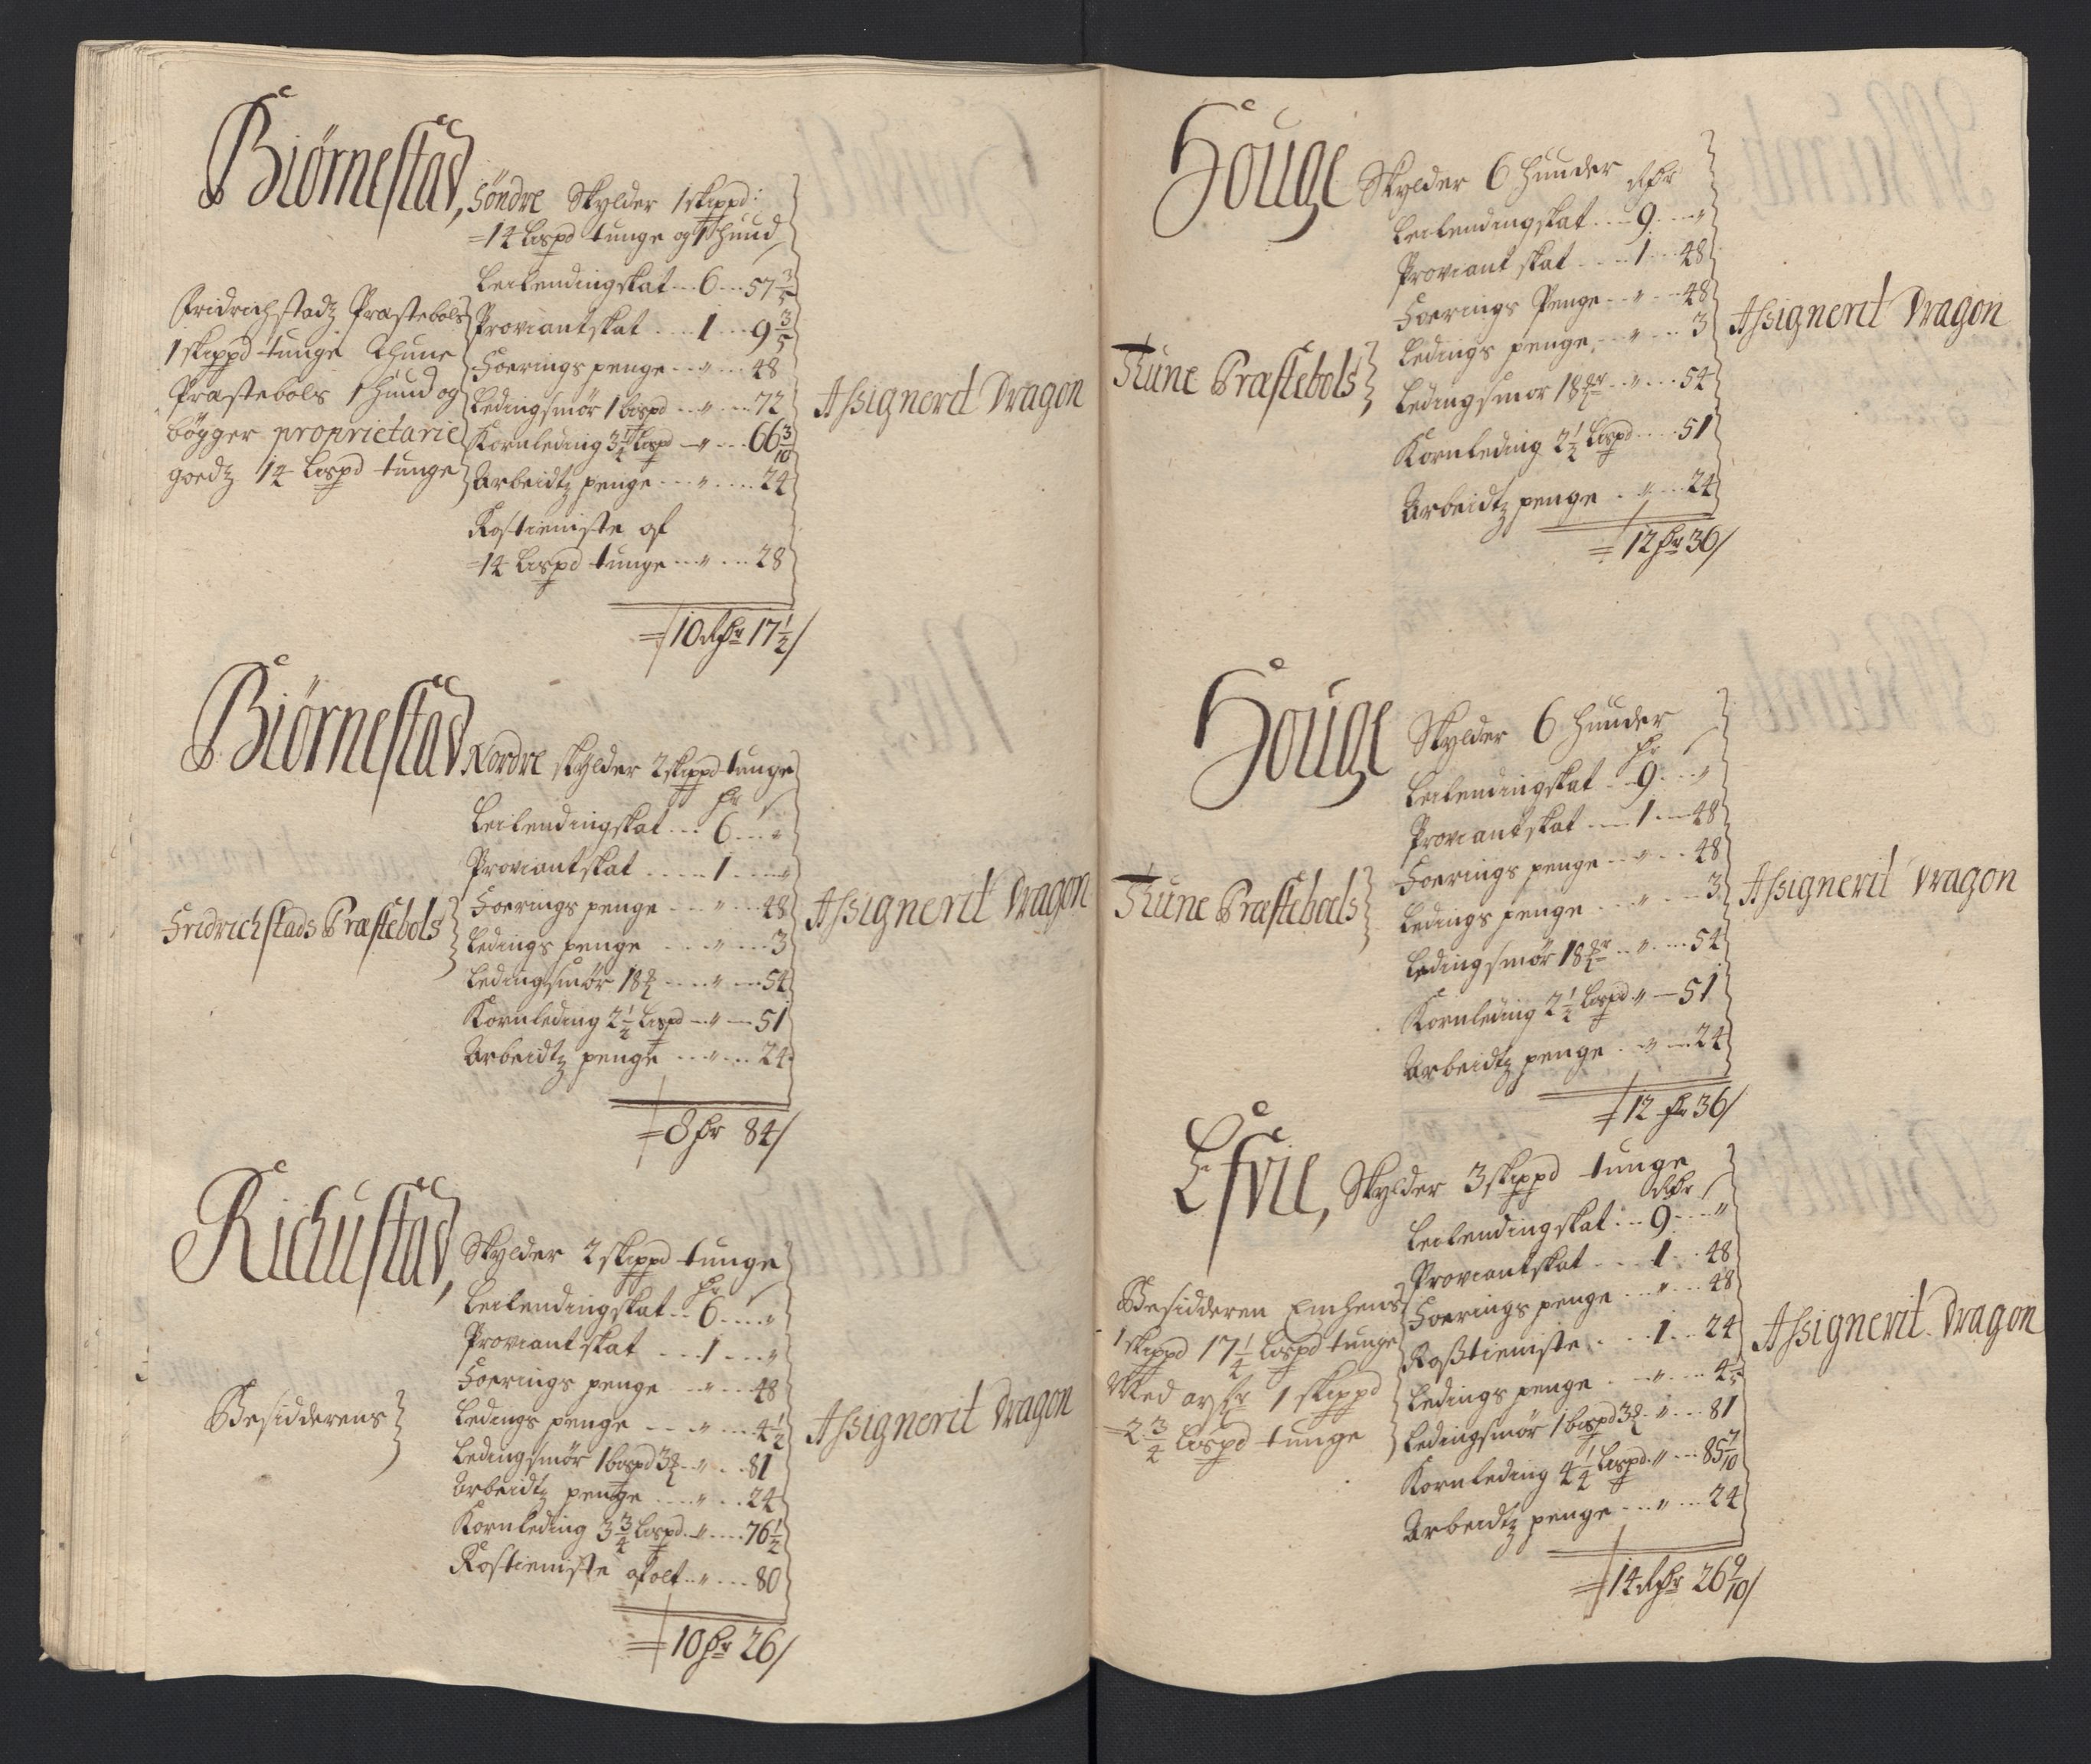 Biørnestad, Söndre Skylder 1 skippd:
=14 lispd tunge og 1 hund
Fridrichstadz Præstebols
1 skippd tunge Thune
Præstebols 1 hund og
böÿger proprietarie
goedz 14 lispd tunge
Leilendingskat 6 57 3/5
Proviantskat 1 9 3/5
Foerings penge " 48
Ledingsmör 1 bispd " 72
Kornleding 3 1/4 lispd " 66 3/10
Arbeidtz penge " 24
Rostieniste af
=14 lispd tunge " 28
=10 Rdr 17 1/2/
Assignerit Dragon
Biørnestad Nordre skylder 2 skippd tunge
Fridrichstads Præstebols
Leilendingskat 6 "
Proviantskat 1 "
Foerings penge " 48
Ledings penge " 3
Ledingsmör 18 " 54
Kornleding 2 1/2 lispd " 51
Arbeidtz penge " 24
=8 dr 84/
Assignerit Dragon
Richustad, Skylder 2 skippd tunge
Besidderens
Leilendingskat 6 "
Proviant skat 1 "
Foerings penge " 48
Ledings penge " 4 1/2
Ledingsmör 1 bispd 3 " 81
Arbeidtz penge " 24
Kornleding 3 3/4 lispd " 76 1/2
Rostieniste af alt " 80
=10 dr 26/
Assignerit Dragon
Houge Skylder 6 hunder
Thune Præstebols
Leilendingskat 9 "
Proviant skat 1 48
Foerings Penge " 48
Ledings penge " 3
Ledingsmör 18 " 54
Kornleding 2 1/2 lispd 51
Arbeidtz penge " 24
=12 dr 36/
Assignerit Dragon
Houge Skylder 6 hunder
Thune Præstebols
Leilendingskat 9 "
Proviantskat 1 48
Foerings penge " 48
Ledings penge " 3
Ledingsmör 18 " 54
Kornleding 2 1/2 lispd " 51
Arbeidtz penge " 24
=12 dr 36/
Assignerit Dragon
Efvie, Skylder 3 skippd tunge
Besidderen
1 skippd 17 1/4 lispd tunge
Med 1 skippd
=2 3/4 lispd tunge
Leilendingskat 9 "
Proviantskat 1 48
Foerings penge " 48
Rostieniste 1 24
Ledings penge " 4 1/5
Ledingsmör 1 bispd 3 " 81
Kornleding 4 1/4 lispd " 85 7/10
Arbeidtz penge " 24
=14 Rdr 26 9/10/
Assignerit Dragon